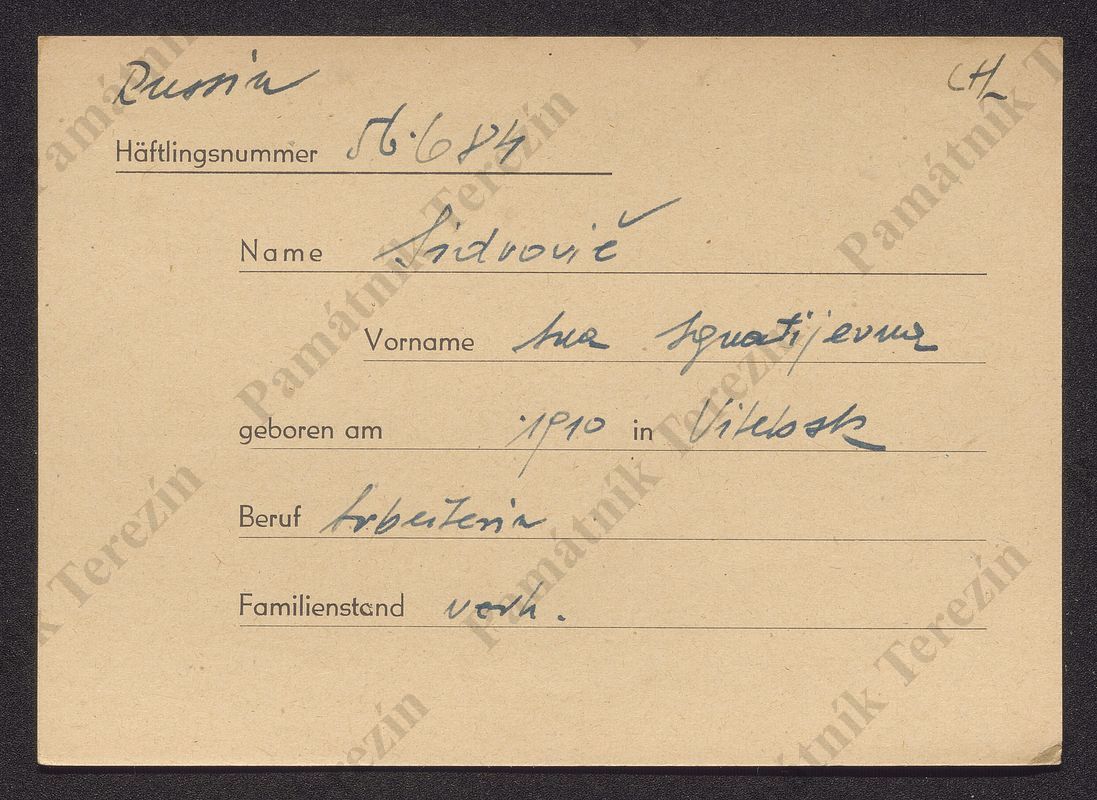 Russin CH
Häftlingsnummer 56.684
Name Sidrovič
Vorname Ana Ignatijevna
geboren am 1910 in Vitebsk
Beruf Arbeiterin
Familienstand verh.
Památník Terezín